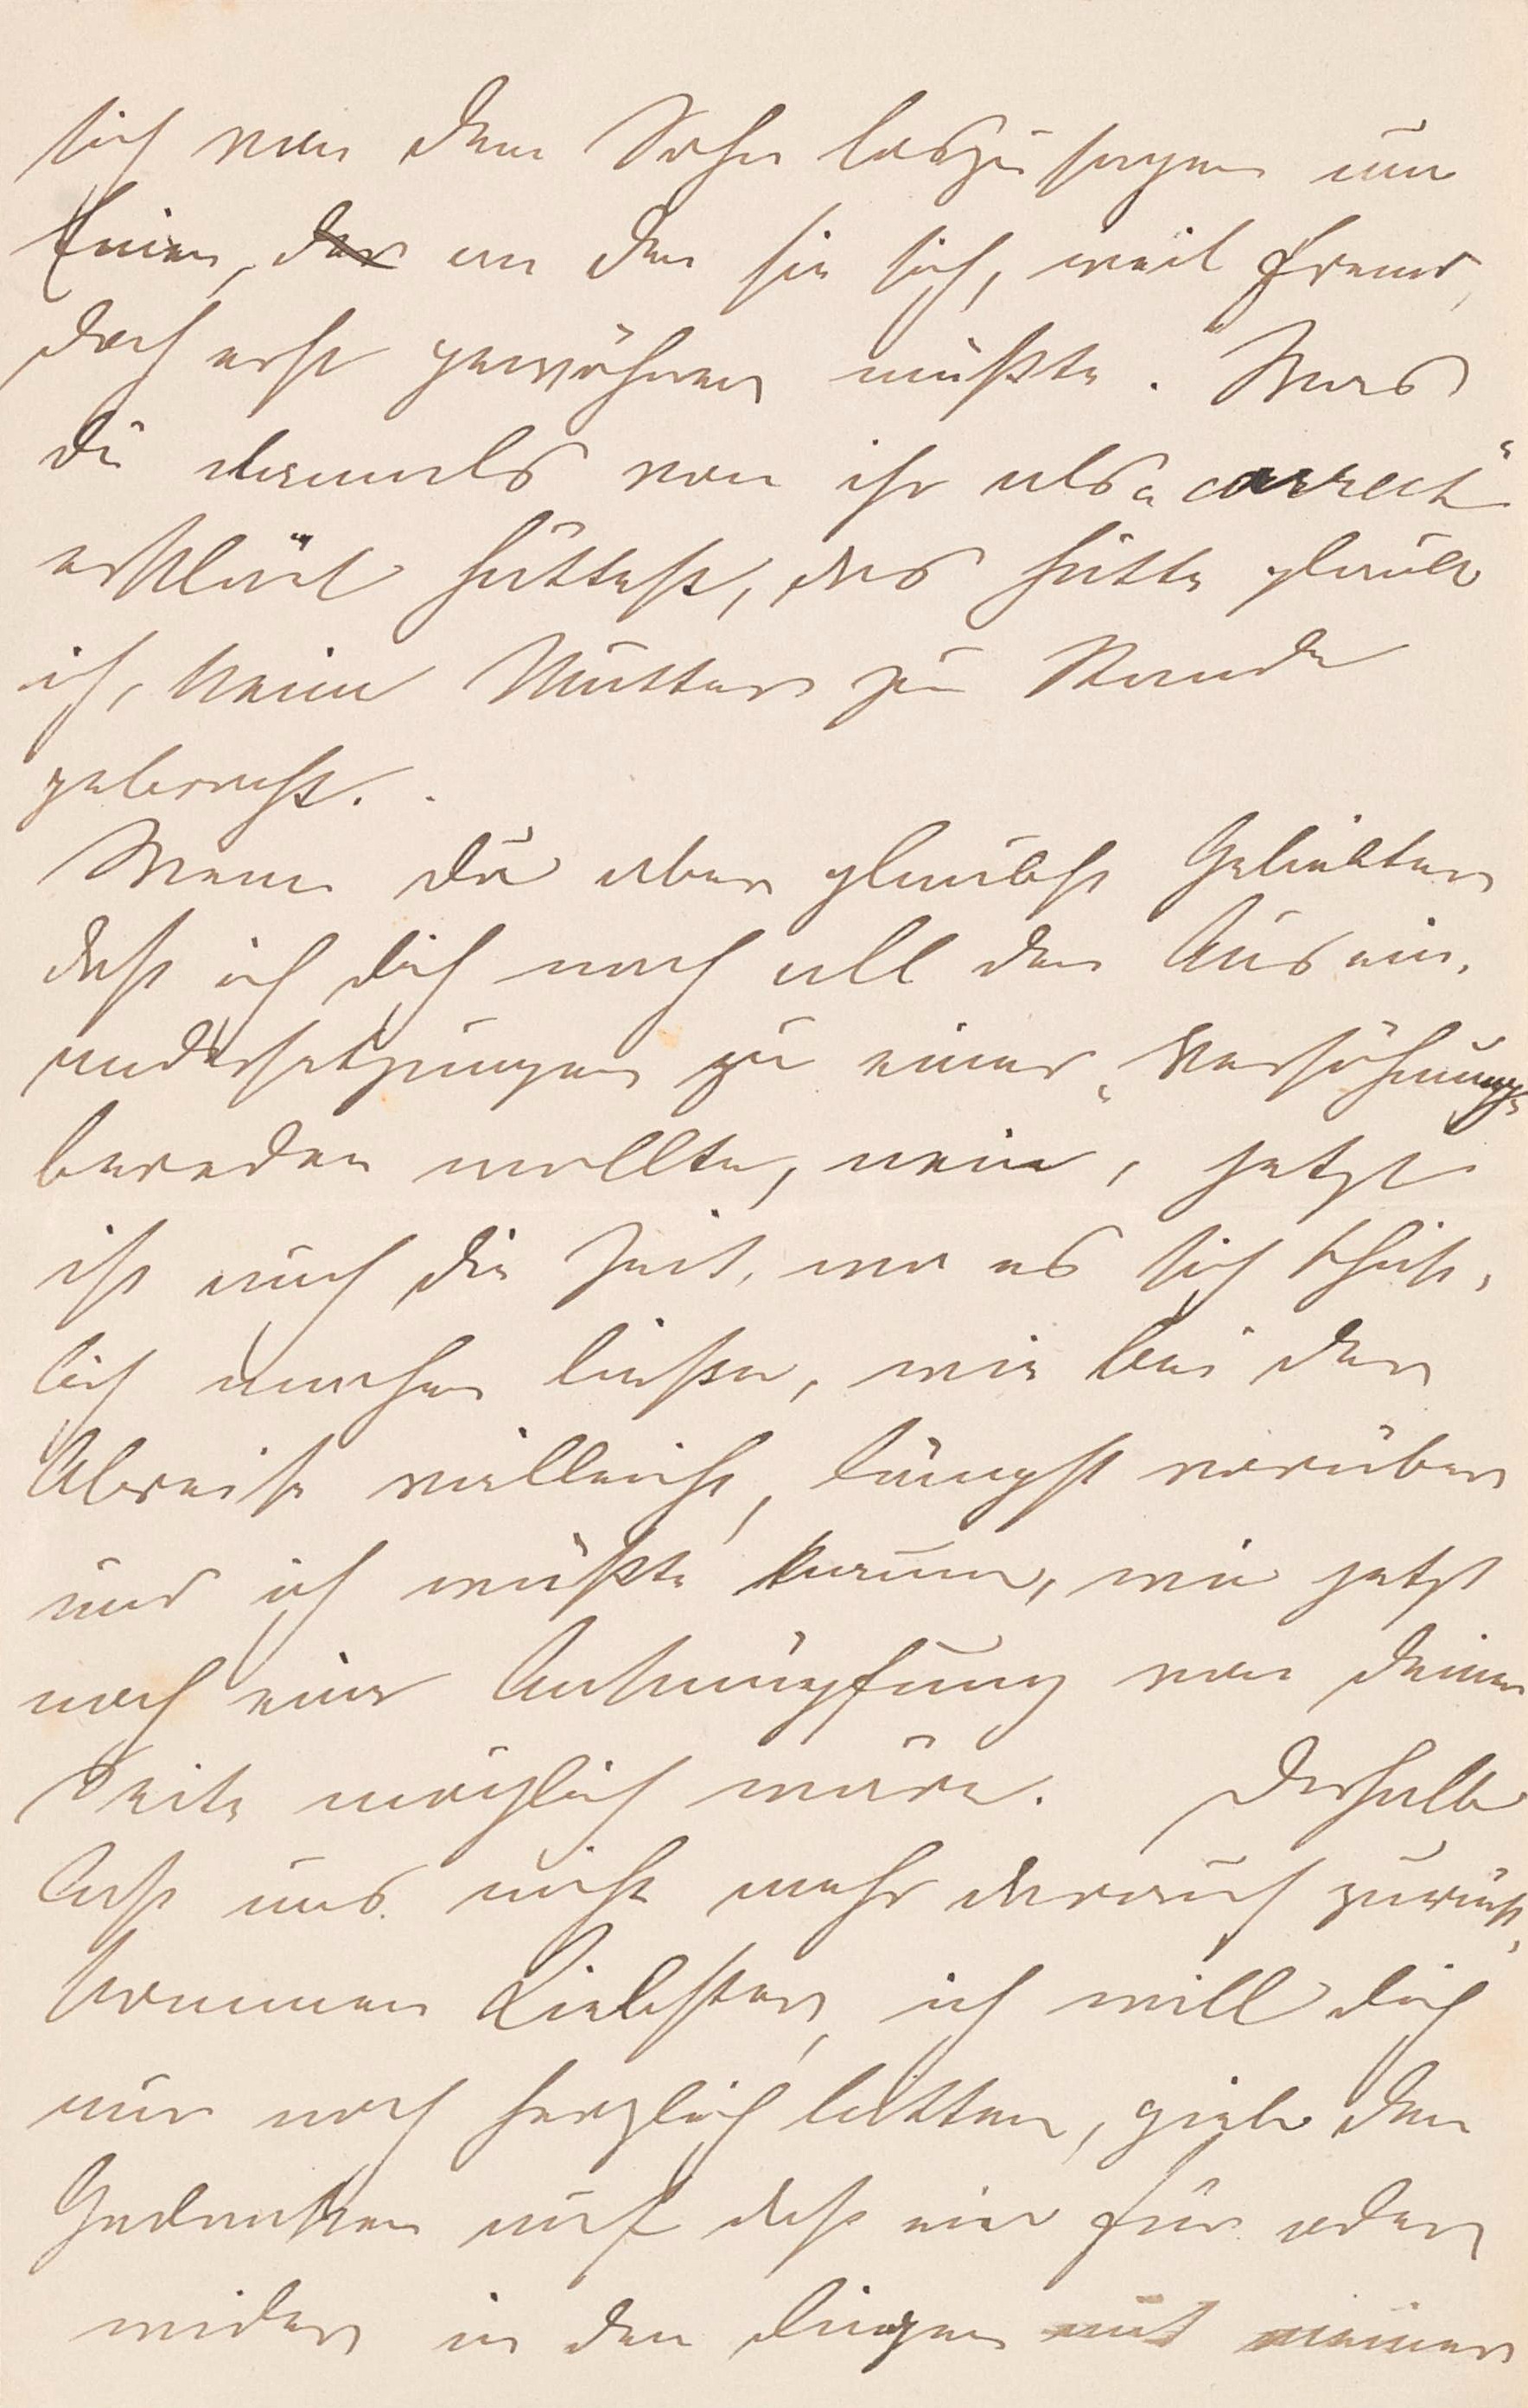 sich von dem Sohn loszusagen um
Einen, der an den sie sich, weil fremd,
doch erst gewöhnen müßte. Was
Du damals von ihr als „correct“
erklärt hättest, das hätte glaube
ich, keine Mutter zu Stande
gebracht.
Wenn Du aber glaubst Geliebter
daß ich Dich nach all den Ausein-
andersetzungen zu einer „Versöhnung“
bereden wollte, nein, jetzt
ist auch die Zeit, wo es sich
lich machen ließe, wie bei der
Abreise vielleicht, längst vorüber
und ich wüßte kaum, wie jetzt
noch eine Anknüpfung von Deiner
Seite möglich wäre. Deshalb
laß uns nicht mehr darauf zurück-
kommen Liebster, ich will Dich
nur noch herzlich bitten, gieb den
Gedanken auf daß ein für oder
wider in den Dingen mit meiner